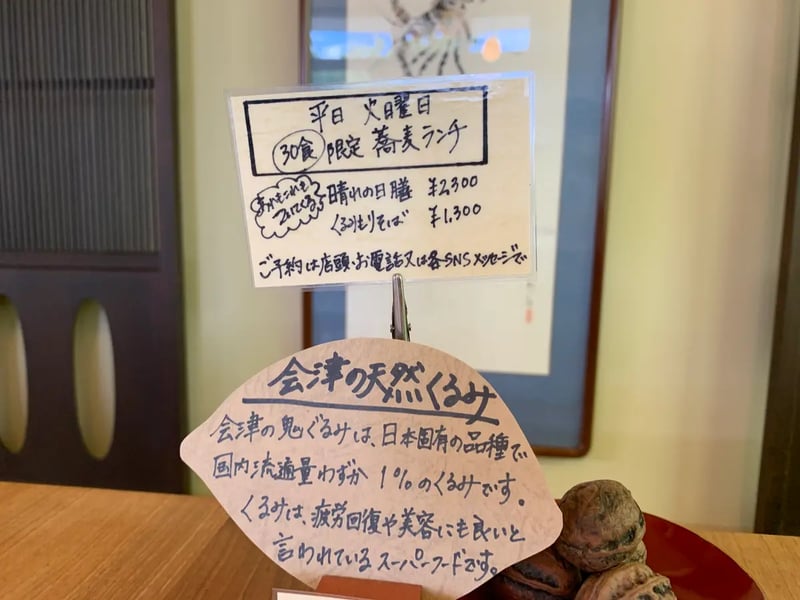 平日 火曜日
30食 限定 蕎麦ランチ
晴れの日膳 ¥2,300
くるみもりそば ¥1,300
ご予約は店頭・お電話又は各SNSメッセージで
会津の天然くるみ
会津の鬼ぐるみは、日本固有の品種で
国内流通量わずか 1%のくるみです。
くるみは、疲労回復や美容にも良いと
言われているスーパーフードです。